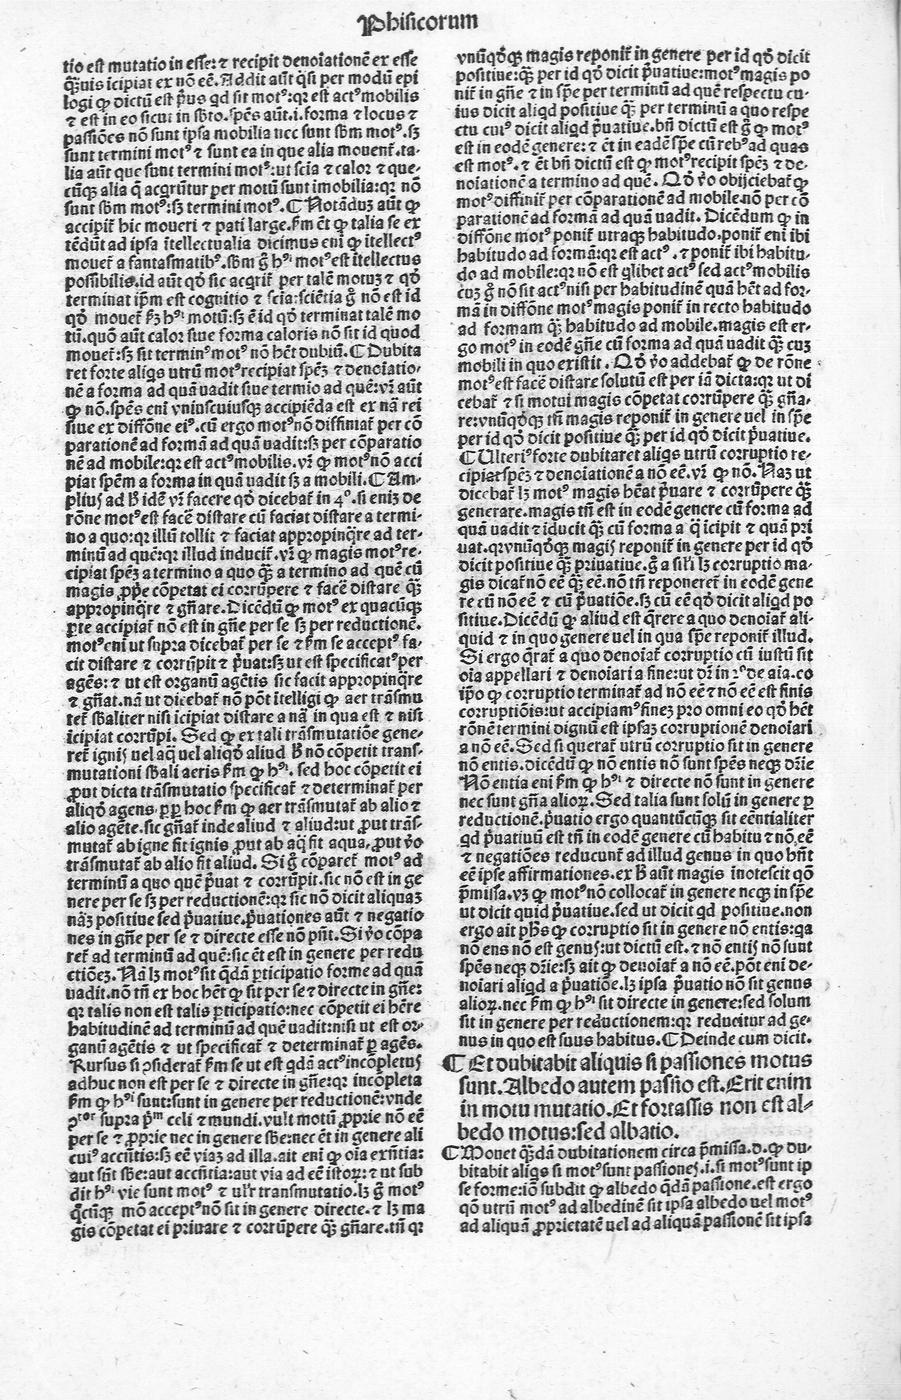 Phisicorum
tio est mutatio in esse: ⁊ recipit denoı̄ationē ex esse
q̄ꝫuis īcipiat ex nō eē. Addit aūt q̄si per modū epi
logi ꝙ dictū est p̄us qd sit motꝰ: qꝛ est actꝰ mobilis
⁊ est in eo sicut in sb̄to. spēs aūt .i. forma ⁊ locus ⁊
passiōes nō sunt ip̄sa mobilia nec sunt sb̄m motꝰ. sꝫ
sunt termini motꝰ ⁊ sunt ea in que alia mouent̄. ta-
lia aūt que sunt termini motꝰ: ut scīa ⁊ calor ⁊ que-
cūqꝫ alia q̄ acqrūtur per motū sunt imobilia: qꝛ nō
sunt sb̄m motꝰ: sꝫ termini motꝰ. ¶ Notāduꝫ aūt ꝙ
accipit̄ hic moueri ⁊ pati large. fm̄ ēt ꝙ talia se ex
tēdūt ad ipsa ītellectualia dicimus enī ꝙ ītellectꝰ
mouet̄ a fantasmatibꝰ. sb̄m ḡ hꝰi motꝰ est ītellectus
possibilis. id aūt qd̄ sic acqrit̄ per talē motuꝫ ⁊ qd̄
terminat ip̄m est cognitio ⁊ scīa: sciētia ḡ nō est id
qd̄ mouet̄ fꝫ hꝰi motū: sꝫ ē id qd̄ terminat talē mo
tū. quō aūt calor siue forma caloris nō sit id quod
mouet̄: sꝫ sit terminꝰ motꝰ nō hēt dubiū. ¶ Dubita
ret forte aliqs utrū motꝰ recipiat spēꝫ ⁊ denoīatio-
nē a forma ad quā uadit siue termio ad quē: vr̄ aūt
ꝙ nō. spēs enī vniuscuiusqꝫ accipiēda est ex nā rei
siue ex diffōne eiꝰ. cū ergo motꝰ nō diffiniat̄ per cō
parationē ad formā ad quā uadit: sꝫ per cōparatio
nē ad mobile: qꝛ est actꝰ mobilis. vr̄ ꝙ motꝰ nō acci
piat spēm a forma in quā uadit sꝫ a mobili. ¶ Am-
plius ad B idē vr̄ facere qd̄ dicebat̄ in 4º. si enīꝫ de
rōne motꝰ est facē distare cū faciat distare a termi-
no a quo: qꝛ illū tollit ⁊ faciat appropinq̄re ad ter-
minū ad quē: qꝛ illud inducit̄. vr̄ ꝙ magis motꝰ re-
cipiat spēꝫ a termino a quo q̄ꝫ a termino ad quē cū
magis ꝓp̄e cōpetat ei corrūpere ⁊ facē distare q̄ꝫ
appropinq̄re ⁊ gn̄are. Dicēdū ꝙ motꝰ ex quacūqꝫ
ꝑte accipiat̄ nō est in gn̄e per se sꝫ per reductionē.
motꝰ enī ut supra dicebat̄ per se ⁊ fm̄ se acceptꝰ fa-
cit distare ⁊ corrūpit ⁊ p̄uat: sꝫ ut est specificatꝰ per
agēs: ⁊ ut est organū agētis sic facit appropinq̄re
⁊ gn̄at. nā ut dicebat̄ nō pōt ītelligi ꝙ aer trāsmu
tet̄ sb̄aliter nisi īcipiat distare a nā in qua est ⁊ nisi
īcipiat corrūpi. Sed ꝙ ex tali trāsmutatiōe gene-
ret̄ ignis uel aq̄ uel aliqd̄ aliud B nō cōpetit trans-
mutationi sb̄ali aeris fm̄ ꝙ hꝰi. sed hoc cōpetit ei
ꝓut dicta trāsmutatio specificat̄ ⁊ determinat̄ per
aliqd̄ agens. ꝓp̄ hoc fm̄ ꝙ aer trāsmutat̄ ab alio ⁊
alio agēte. sic gn̄at̄ inde aliud ⁊ aliud: ut ꝓut trās-
mutat̄ ab igne fit ignis ꝓut ab aq̄ fit aqua, ꝓut v̄o
trāsmutat̄ ab alio fit aliud. Si ḡ cōparet̄ motꝰ ad
terminū a quo quē p̄uat ⁊ corrūpit. sic nō est in ge
nere per se sꝫ per reductionē: qꝛ sic nō dicit aliquaꝫ
nāꝫ positiue sed p̄uatiue. p̄uationes aūt ⁊ negatio
nes in gn̄e per se ⁊ directe esse nō pn̄t. Si v̄o cōpa
ret̄ ad terminū ad quē: sic ēt est in genere per redu
ctiōeꝫ. Nā lꝫ motꝰ sit q̄dā ꝑticipatio forme ad quā
uadit. nō tn̄ ex hoc hēt ꝙ sit per se ⁊ directe in gn̄e:
qꝛ talis non est talis ꝑticipatio: nec cōpetit ei hēre
habitudinē ad terminū ad quē uadit: nisi ut est or-
ganū agētis ⁊ ut specificat̄ ⁊ determinat̄ ꝑ agēs.
Rursus si ꝯsiderat̄ fm̄ se ut est qdā actꝰ incōpletus
adhuc non est per se ⁊ directe in gn̄e: qꝛ incōpleta
fm̄ ꝙ hꝰi sunt: sunt in genere per reductionē: vnde
ꝯᵗᵒʳ supra p̄ᵐ celi ⁊ mundi. vult motū ꝓprie nō eē
per se ⁊ ꝓprie nec in genere sb̄e: nec ēt in genere ali
cuiꝰ accn̄tis: sꝫ eē viaꝫ ad illa. ait enī ꝙ oīa exn̄tia:
aut sn̄t sb̄e: aut accn̄tia: aut via ad eē istoꝝ: ⁊ ut sub
dit hꝰi vie sunt motꝰ ⁊ ul̄r transmutatio. lꝫ ḡ motꝰ
q̄cūqꝫ mō acceptꝰ nō sit in genere directe. ⁊ lꝫ ma
gis cōpetat ei priuare ⁊ corrūpere q̄ꝫ gn̄are. tn̄ qꝛ
vnūqd̄qꝫ magis reponit̄ in genere per id qd̄ dicit
positiue: q̄ꝫ per id qd̄ dicit p̄uatiue: motꝰ magis po
nit̄ in gn̄e ⁊ in sp̄e per terminū ad quē respectu cu-
ius dicit aliqd positiue q̄ꝫ per terminū a quo respe
ctu cuiꝰ dicit aliqd p̄uatiue. bn̄ dictū est ḡ ꝙ motꝰ
est in eodē genere: ⁊ ēt in eadē sp̄e cū rebꝰ ad quas
est motꝰ. ⁊ ēt bn̄ dictū est ꝙ motꝰ recipit spēꝫ ⁊ de-
noīationē a termino ad quē. Qd̄ v̄o obijciebat̄ ꝙ
motꝰ diffinit̄ per cōparationē ad mobile. nō per cō
parationē ad formā ad quā uadit. Dicēdum ꝙ in
diffōne motꝰ ponit̄ utraqꝫ habitudo. ponit̄ enī ibi
habitudo ad formā: qꝛ est actꝰ. ⁊ ponit̄ ibi habitu-
do ad mobile: qꝛ nō est qlibet actꝰ sed actꝰ mobilis
cuꝫ ḡ nō sit actꝰ nisi per habitudinē quā hēt ad for-
mā in diffōne motꝰ magis ponit̄ in recto habitudo
ad formam q̄ꝫ habitudo ad mobile. magis est er-
go motꝰ in eodē gn̄e cū forma ad quā uadit q̄ꝫ cuꝫ
mobili in quo existit. Qd̄ v̄o addebat̄ ꝙ de rōne
motꝰ est facē distare solutū est per iā dicta: qꝛ ut di
cebat̄ ⁊ si motui magis cōpetat corrūpere q̄ꝫ gn̄a-
re: vnūqd̄qꝫ tn̄ magis reponit̄ in genere uel in sp̄e
per id qd̄ dicit positiue q̄ꝫ per id qd̄ dicit p̄uatiue.
¶ Ulteriꝰ forte dubitaret aliqs utrū corruptio re-
cipiat spēꝫ ⁊ denoīationē a nō eē. vr̄ ꝙ nō. Naꝫ ut
dicebat̄ lꝫ motꝰ magis hēat p̄uare ⁊ corrūpere q̄ꝫ
generare. magis tn̄ est in eodē genere cū forma ad
quā uadit ⁊ īducit q̄ꝫ cū forma a q̄ īcipit ⁊ quā pri
uat. qꝛ vnūqd̄qꝫ magis reponit̄ in genere per id qd̄
dicit positiue q̄ꝫ priuatiue. ḡ a sil̄i lꝫ corruptio ma-
gis dicat̄ nō eē q̄ꝫ eē. nō tn̄ reponeret̄ in eodē gene
re cū nō eē ⁊ cū p̄uatiōe. sꝫ cū eē qd̄ dicit aliqd po
sitiue. Dicēdū ꝙ aliud est q̄rere a quo denoīat̄ ali-
quid ⁊ in quo genere uel in qua sp̄e reponit̄ illud.
Si ergo q̄rat̄ a quo denoīat̄ corruptio cū iustū sit
oīa appellari ⁊ denoīari a fine: ut dr̄ in 2º de aīa. co
ip̄o ꝙ corruptio terminat̄ ad nō eē ⁊ nō eē est finis
corruptiōis: ut accipiamꝰ fineꝫ pro omni eo qd̄ hēt
rōnē termini dignū est ipsaꝫ corruptionē denoīari
a nō eē. Sed si querat̄ utrū corruptio sit in genere
nō entis. dicēdū ꝙ nō entis nō sunt spēs neqꝫ dr̄ie
Nō entia enī fm̄ ꝙ hꝰi ⁊ directe nō sunt in genere
nec sunt gn̄a alioꝝ. Sed talia sunt solū in genere ꝑ
reductionē. p̄uatio ergo quantūcūqꝫ sit eēntialiter
qd p̄uatiuū est tn̄ in eodē genere cū habitu ⁊ nō eē
⁊ negatiōes reducunt̄ ad illud genus in quo hn̄t
eē ipse affirmationes. ex B aūt magis īnotescit qd̄
p̄missa. vꝫ ꝙ motꝰ nō collocat̄ in genere neqꝫ in sp̄e
ut dicit quid p̄uatiue. sed ut dicit qd positiue. non
ergo ait ph̄s ꝙ corruptio sit in genere nō entis: qa
nō ens nō est genus: ut dictū est. ⁊ nō entis nō sunt
spēs neqꝫ dr̄ie: sꝫ ait ꝙ denoīat̄ a nō eē. pōt enī de-
noīari aliqd a p̄uatiōe. lꝫ ipsa p̄uatio nō sit genus
alioꝝ. nec fm̄ ꝙ hꝰi sit directe in genere: sed solum
sit in genere per reductionem: qꝛ reducitur ad ge-
nus in quo est suus habitus. ¶ Deinde cum dicit.
¶ Et dubitabit aliquis si passiones motus
sunt. Albedo autem passio est. Erit enim
in motu mutatio. Et fortassis non est al-
bedo motus: sed albatio.
¶ Mouet q̄ꝫdā dubitationem circa p̄missa. d. ꝙ du-
bitabit aliqs si motꝰ sunt passiones. i. si motꝰ sunt ip
se forme: iō subdit ꝙ albedo q̄dā passio ne. est ergo
qō utrū motꝰ ad albedinē sit ipsa albedo uel motꝰ
ad aliquā ꝓprietatē uel ad aliquā passionē sit ipsa